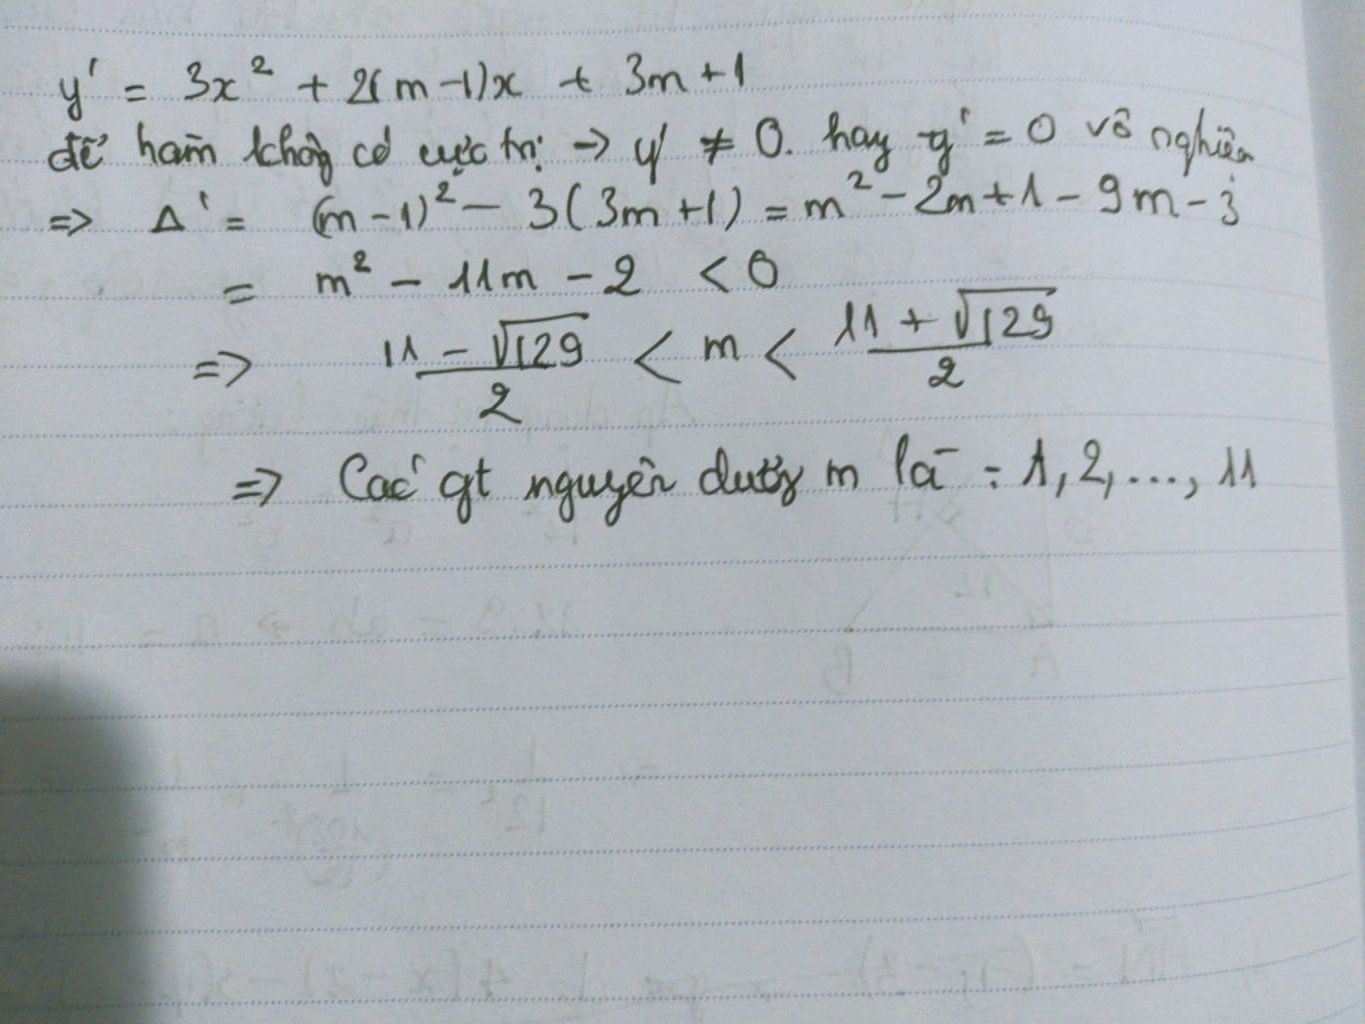 y' = 3x² + 2(m-1)x + 3m+1
để hàm không có cực trị → y' ≠ 0. hay y' = 0 vô nghiệm
=> Δ' = (m-1)² - 3(3m+1) = m² - 2m+1 - 9m - 3
= m² - 11m - 2 < 0
=> (11 - √129)/2 < m < (11 + √129)/2
=> Các gt nguyên dương m là : 1, 2, ..., 11